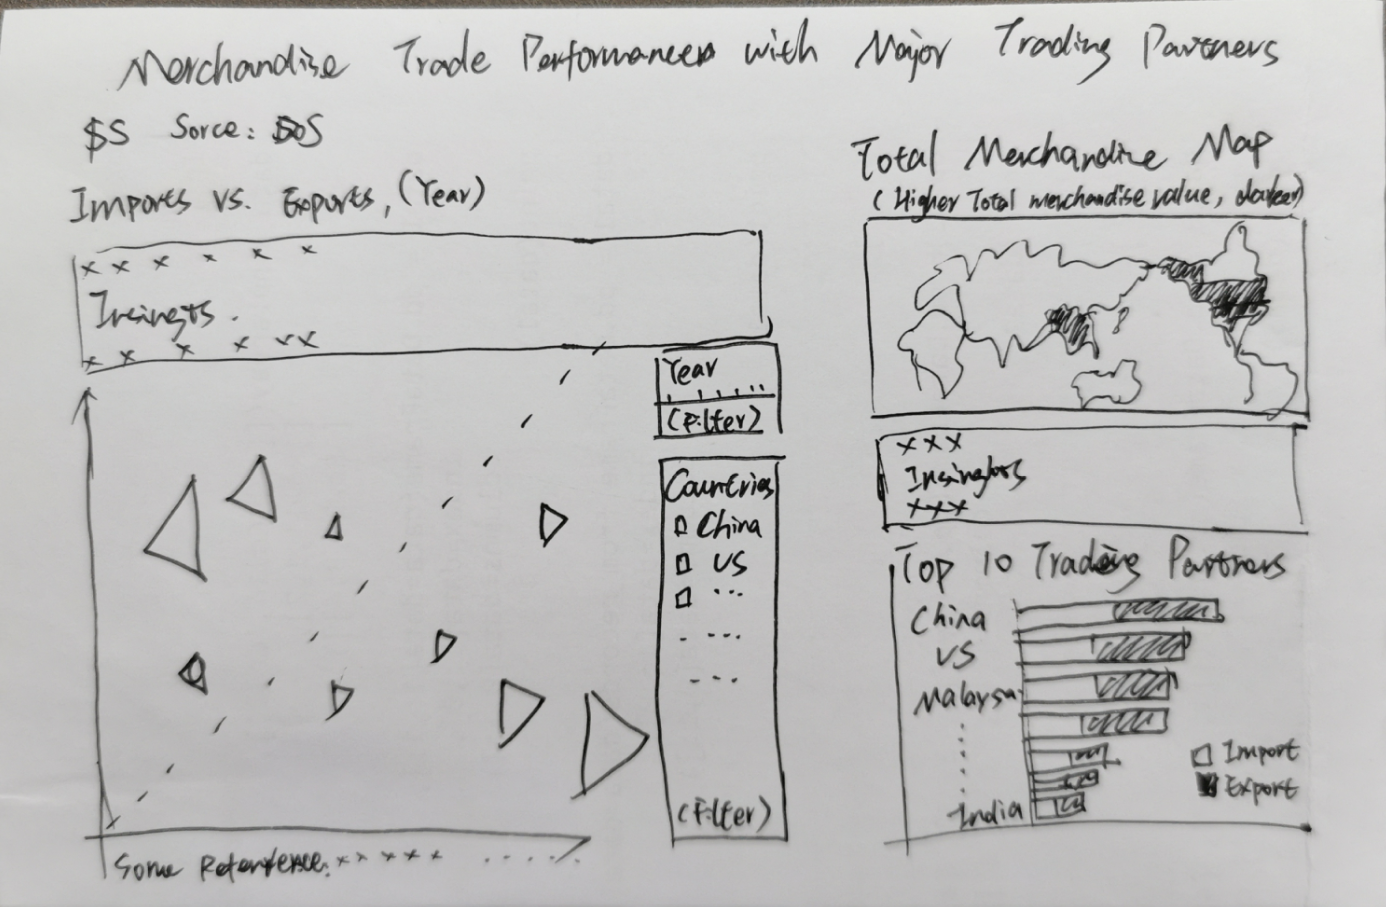 Merchandise Trade Performances with Major Trading Partners
$S Sorce: DOS
Imports vs. Exports, (Year)
x x x x x x
Insingts.
x x x x x x
Year
(Filter)
Countries
China
US
...
. ...
- ...
(Filter)
Some Reterference: x x x x x .....
Total Merchandize Map
(Higher Total merchandise value, darker)
x x x
Insinghts
x x x
Top 10 Trading Partners
China
US
Malaysa
India
Import
Export